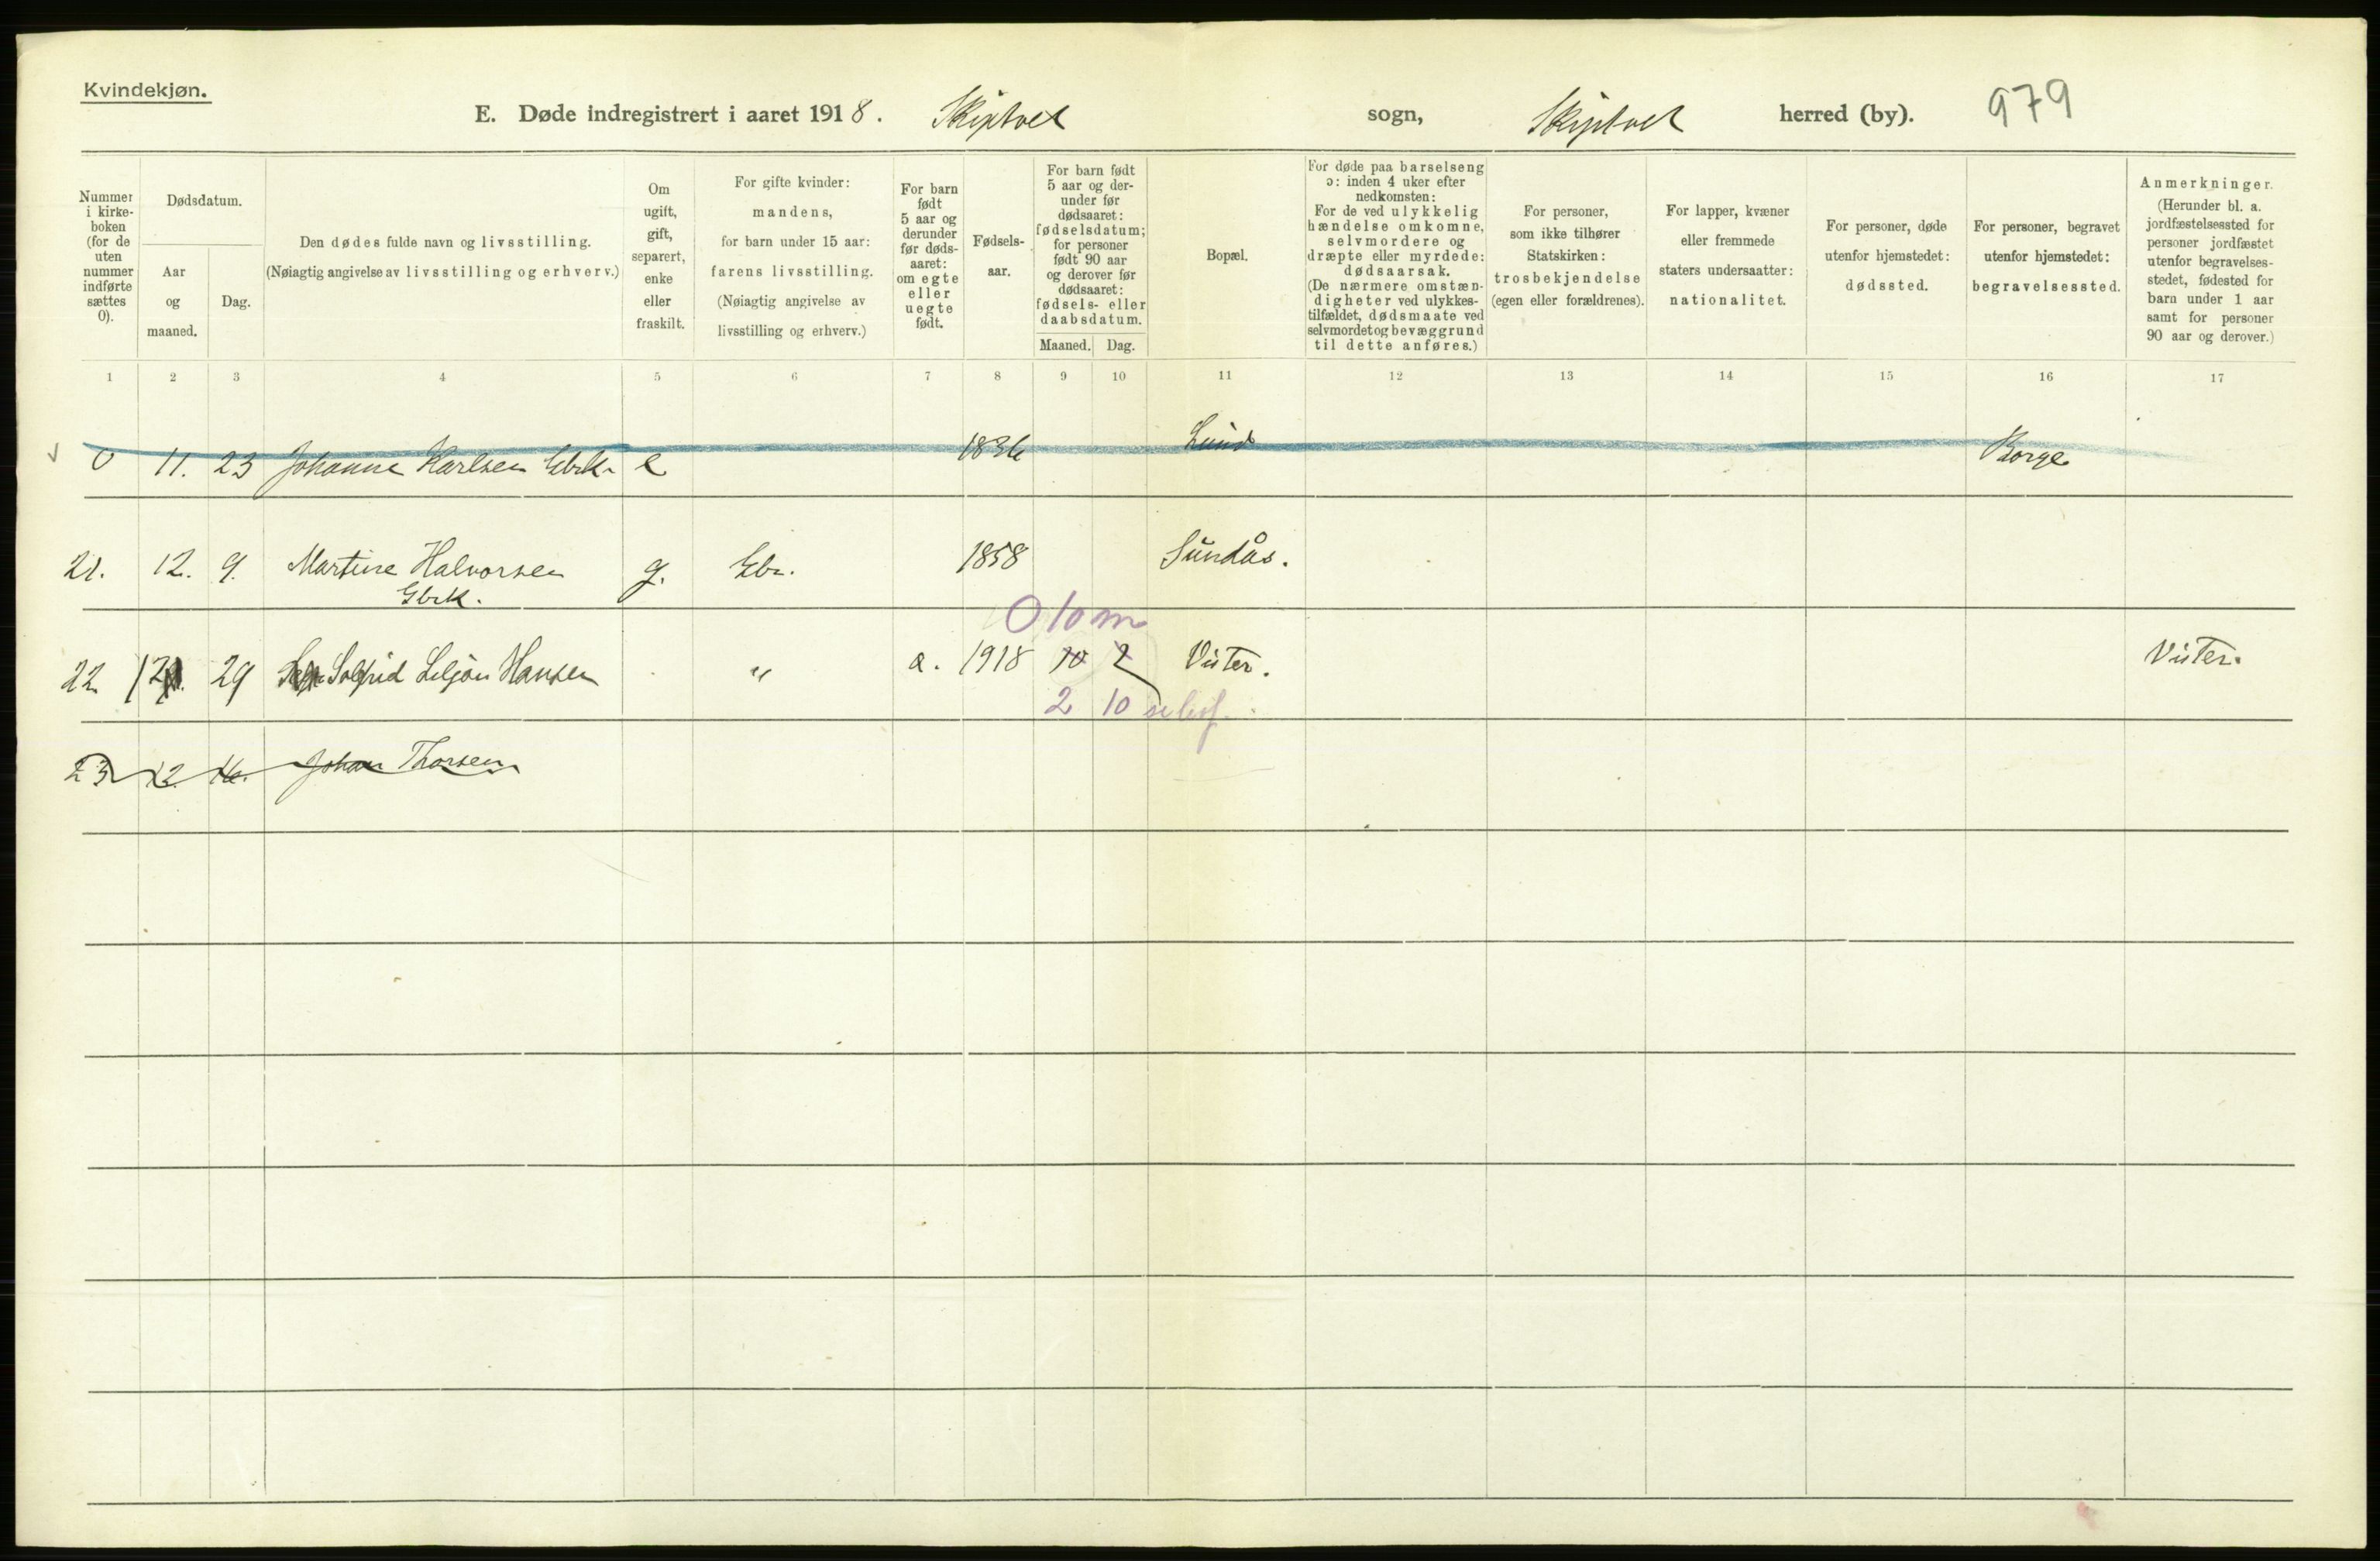 Kvindekjøn.
E. Døde indregistrert i aaret 1918. Skiptvet sogn, Skiptvet herred (by). 979
Nummer
i kirke-
boken
(for de
uten
nummer
indførte
sættes
0).
Dødsdatum.
Aar
og
maaned.
Dag.
Den dødes fulde navn og livsstilling.
(Nøiagtig angivelse av livsstilling og erhverv.)
Om
ugift,
gift,
separert,
enke
eller
fraskilt.
For gifte kvinder:
mandens,
for barn under 15 aar:
farens livsstilling.
(Nøiagtig angivelse av
livsstilling og erhverv.)
For barn
født
5 aar og
derunder
før døds-
aaret:
om egte
eller
uegte
født.
Fødsels-
aar.
For barn født
5 aar og der-
under før
dødsaaret:
fødselsdatum;
for personer
født 90 aar
og derover før
dødsaaret:
fødsels- eller
daabsdatum.
Maaned. Dag.
Bopæl.
For døde paa barselseng
ɔ: inden 4 uker efter
nedkomsten:
For de ved ulykkelig
hændelse omkomne,
selvmordere og
dræpte eller myrdede:
dødsaarsak.
(De nærmere omstæn-
digheter ved ulykkes-
tilfældet, dødsmaate ved
selvmordet og bevæggrund
til dette anføres.)
For personer,
som ikke tilhører
Statskirken:
trosbekjendelse
(egen eller forældrenes).
For lapper, kvæner
eller fremmede
staters undersaatter:
nationalitet.
For personer, døde
utenfor hjemstedet:
dødssted.
For personer, begravet
utenfor hjemstedet:
begravelsessted.
Anmerkninger.
(Herunder bl. a.
jordfæstelsessted for
personer jordfæstet
utenfor begravelses-
stedet, fødested for
barn under 1 aar
samt for personer
90 aar og derover.)
1 2 3 4 5 6 7 8 9 10 11 12 13 14 15 16 17
0 11. 23 Johanne Karlsen Gbrk. e 1836 Lund Borge
21. 12. 9. Martine Halvorsen g. Gbr. 1858 Sundås.
Gbrk.
0 10 m
22 12 29 Solfrid Liljon Hansen " e. 1918 10 2 Vister. Vister.
2 10
23 12 16. Johan Thorsen